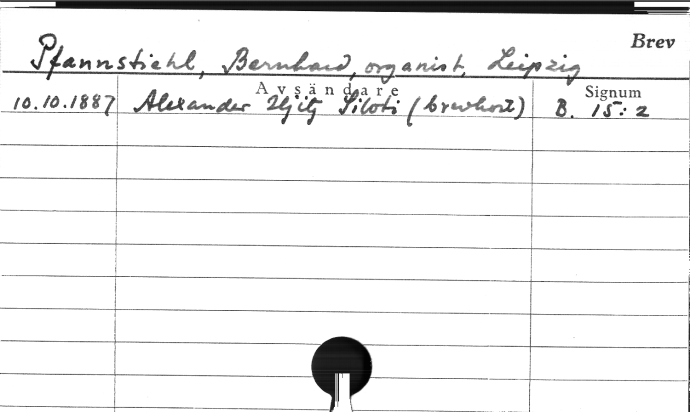 Brev
Pfannstiehl, Bernhard, organist, Leipzig
Avsändare Signum
10.10.1887 Alexander Iljitj Siloti (brevkort) B. 15:2